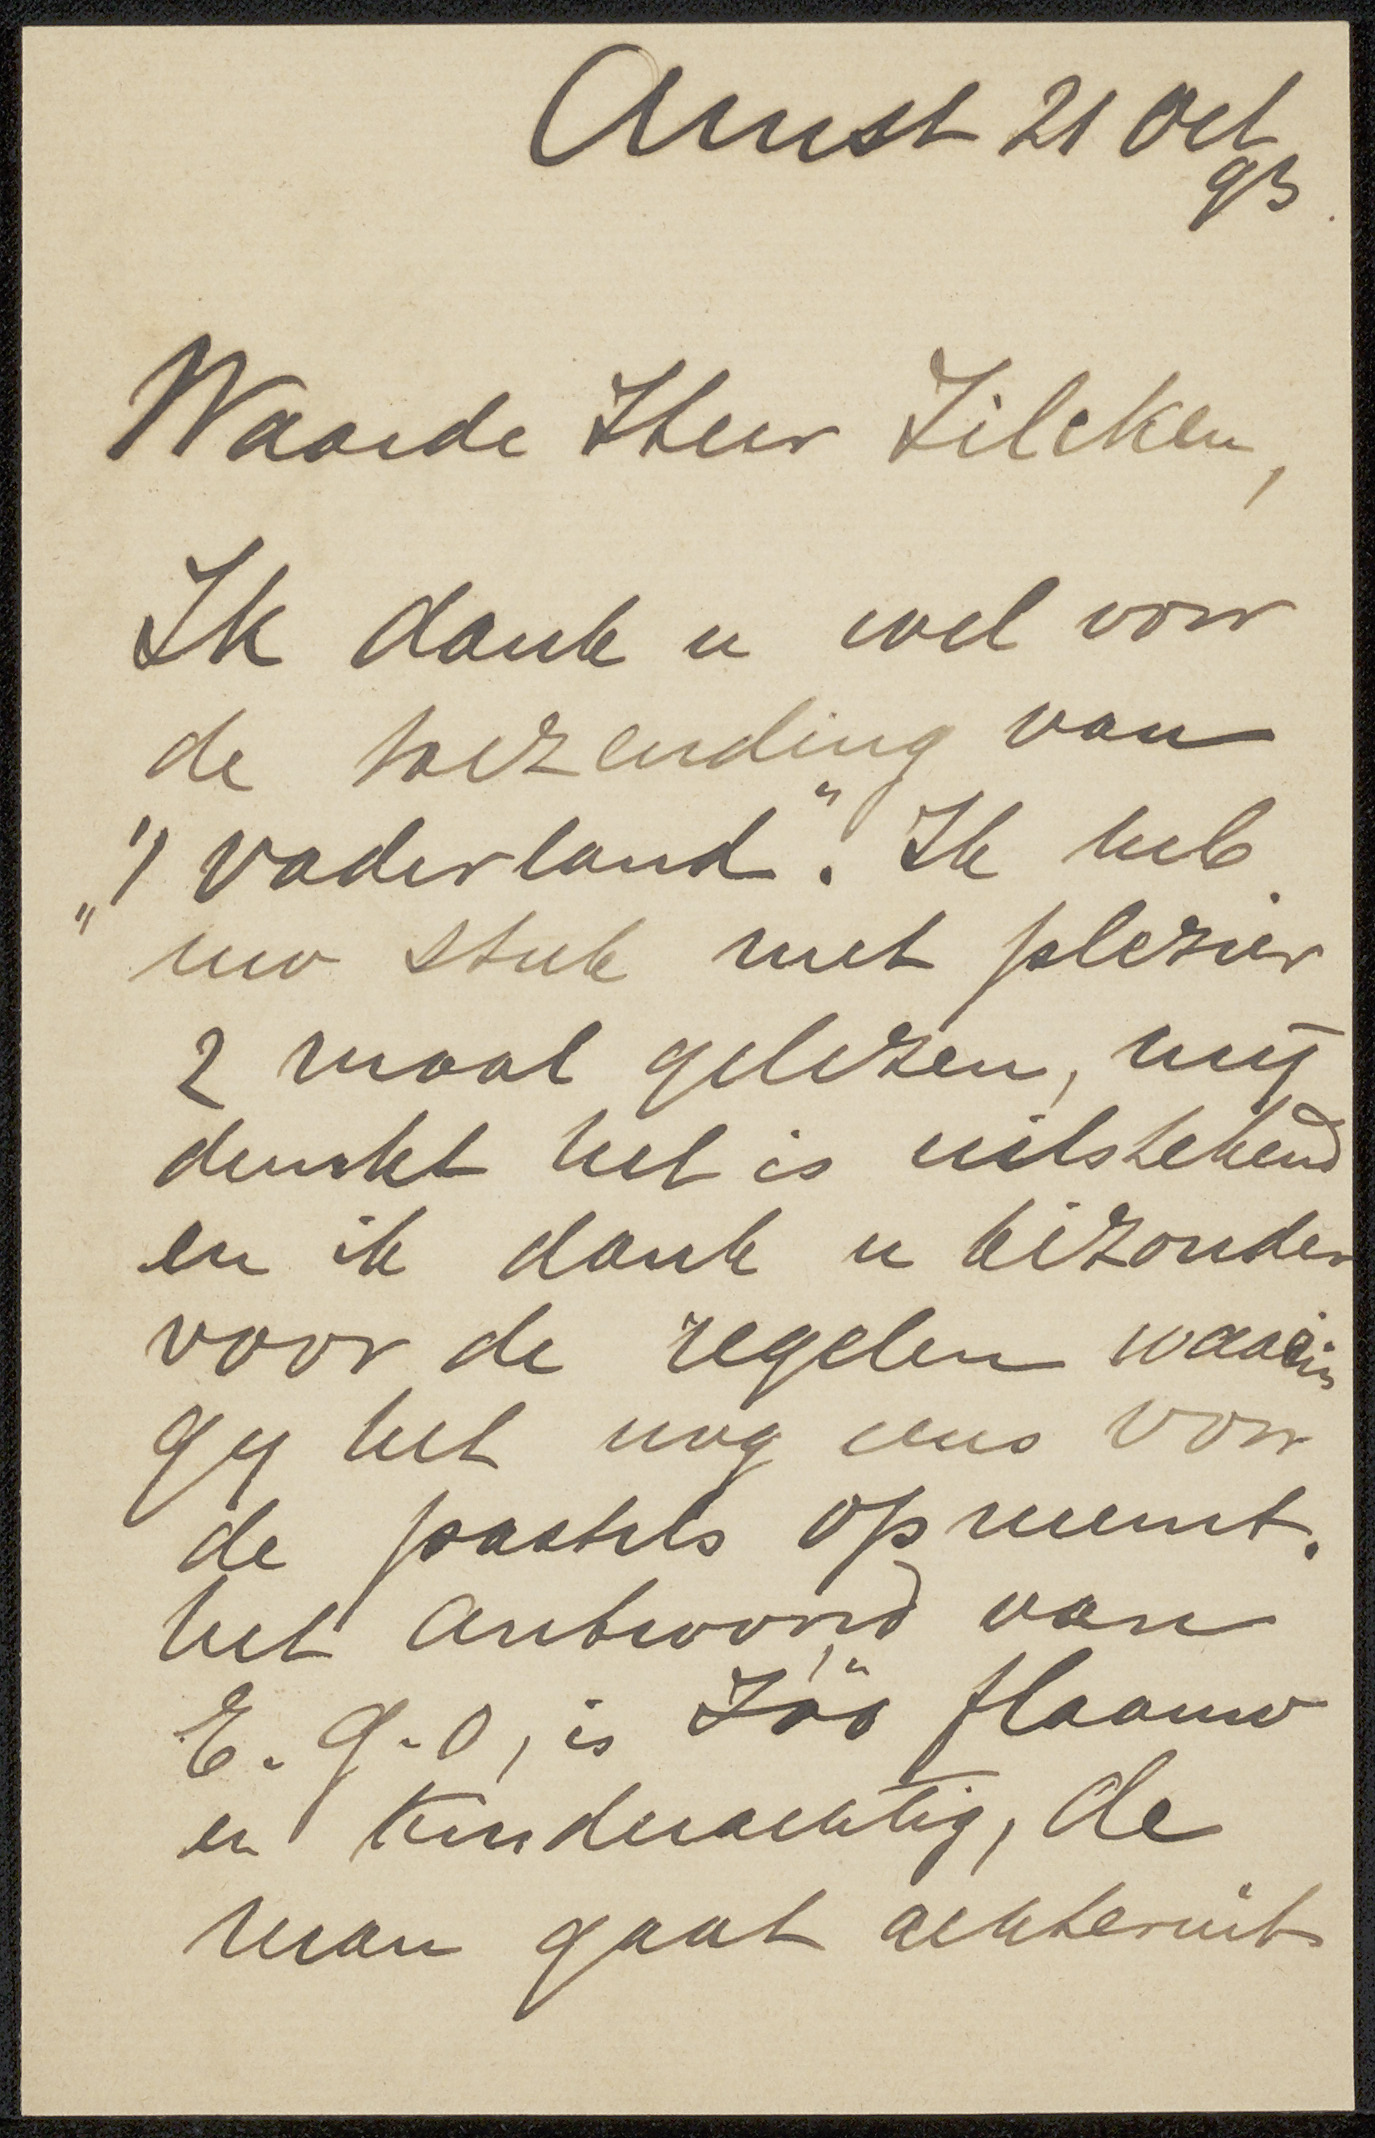 Amst 21 Oct
93.
Waarde Heer Zilcken,
Ik dank u wel voor
de toezending van
„'t Vaderland”. Ik heb
uw stuk met plezier
2 maal gelezen, mij
dunkt het is uitstekend
en ik dank u bizonder
voor de regelen waarin
gy het nog eens voor
de pastels opneemt.
het antwoord van
E. G. O, is zóó flaauw
en kinderachtig, de
man gaat achteruit